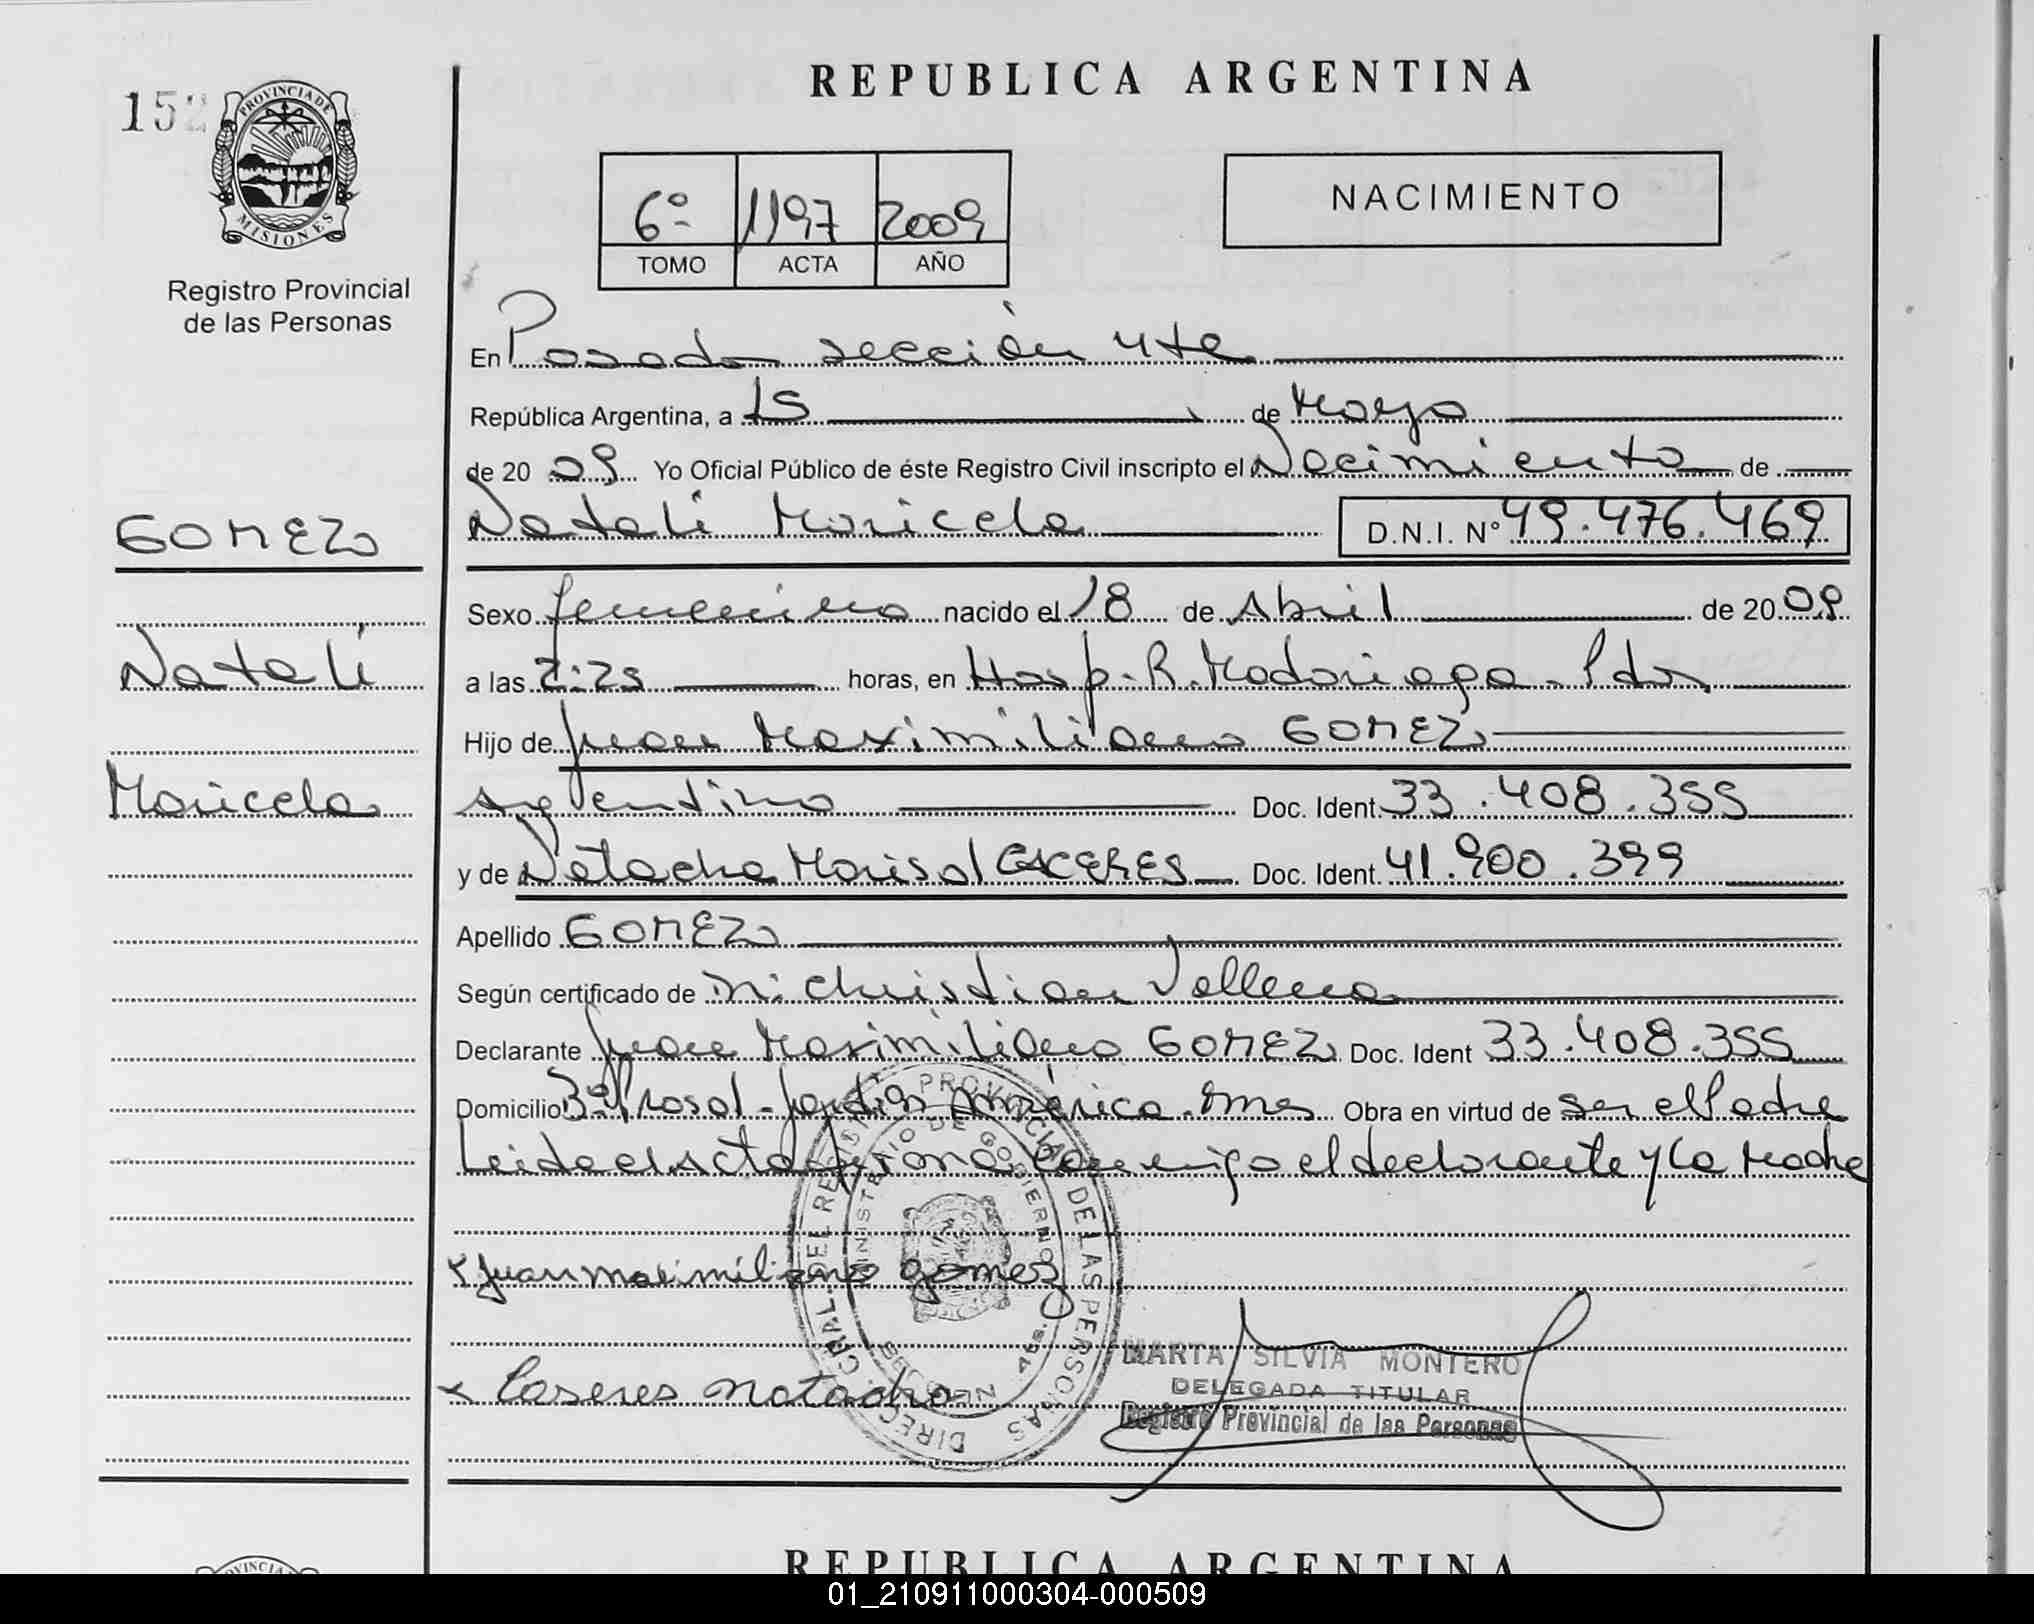 REPUBLICA ARGENTINA
152
PROVINCIA DE
MISIONES
Registro Provincial
de las Personas
6º 1197 2009
TOMO ACTA AÑO
NACIMIENTO
En Posadas sección 4ta
República Argentina, a 15 de Mayo
de 2009 Yo Oficial Público de éste Registro Civil inscripto el Nacimiento de
Natalí Maricela D.N.I. Nº 49.476.469
GOMEZ
Natalí
Maricela
Sexo femenino nacido el 18 de Abril de 2009
a las 2:25 horas, en Hosp. R. Madariaga. Pdas
Hijo de Juan Maximiliano GOMEZ
argentino Doc. Ident. 33.408.355
y de Natacha Marisol CACERES Doc. Ident. 41.900.399
Apellido GOMEZ
Según certificado de Christian
Declarante Juan Maximiliano GOMEZ Doc. Ident 33.408.355
Domicilio América Obra en virtud de ser el Padre
Leida el Acta firma conmigo el declarante y la Madre
x Juan maximiliano gomez
x Caseres natacha
DIREC. GRAL. DEL REG. PROVINCIAL DE LAS PERSONAS
MINISTERIO DE GOBIERNO
MARTA SILVIA MONTERO
DELEGADA TITULAR
Registro Provincial de las Personas
REPUBLICA ARGENTINA
01_210911000304-000509